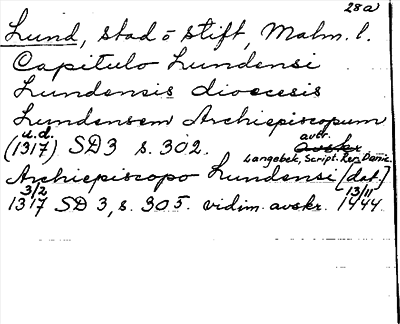 28a
Lund, stad o stift, Malm. l.
Capitulo Lundensi
Lundensis dioecesis
Lundensem Archiepiscopum
u.d. avtr.
(1317) SD 3 s. 302. avskr
Langebek, Script. Rer. Danic.
Archiepiscopo Lundensi [dat.]
3/2 13/11
1317 SD 3, s. 305. vidim. avskr. 1444.